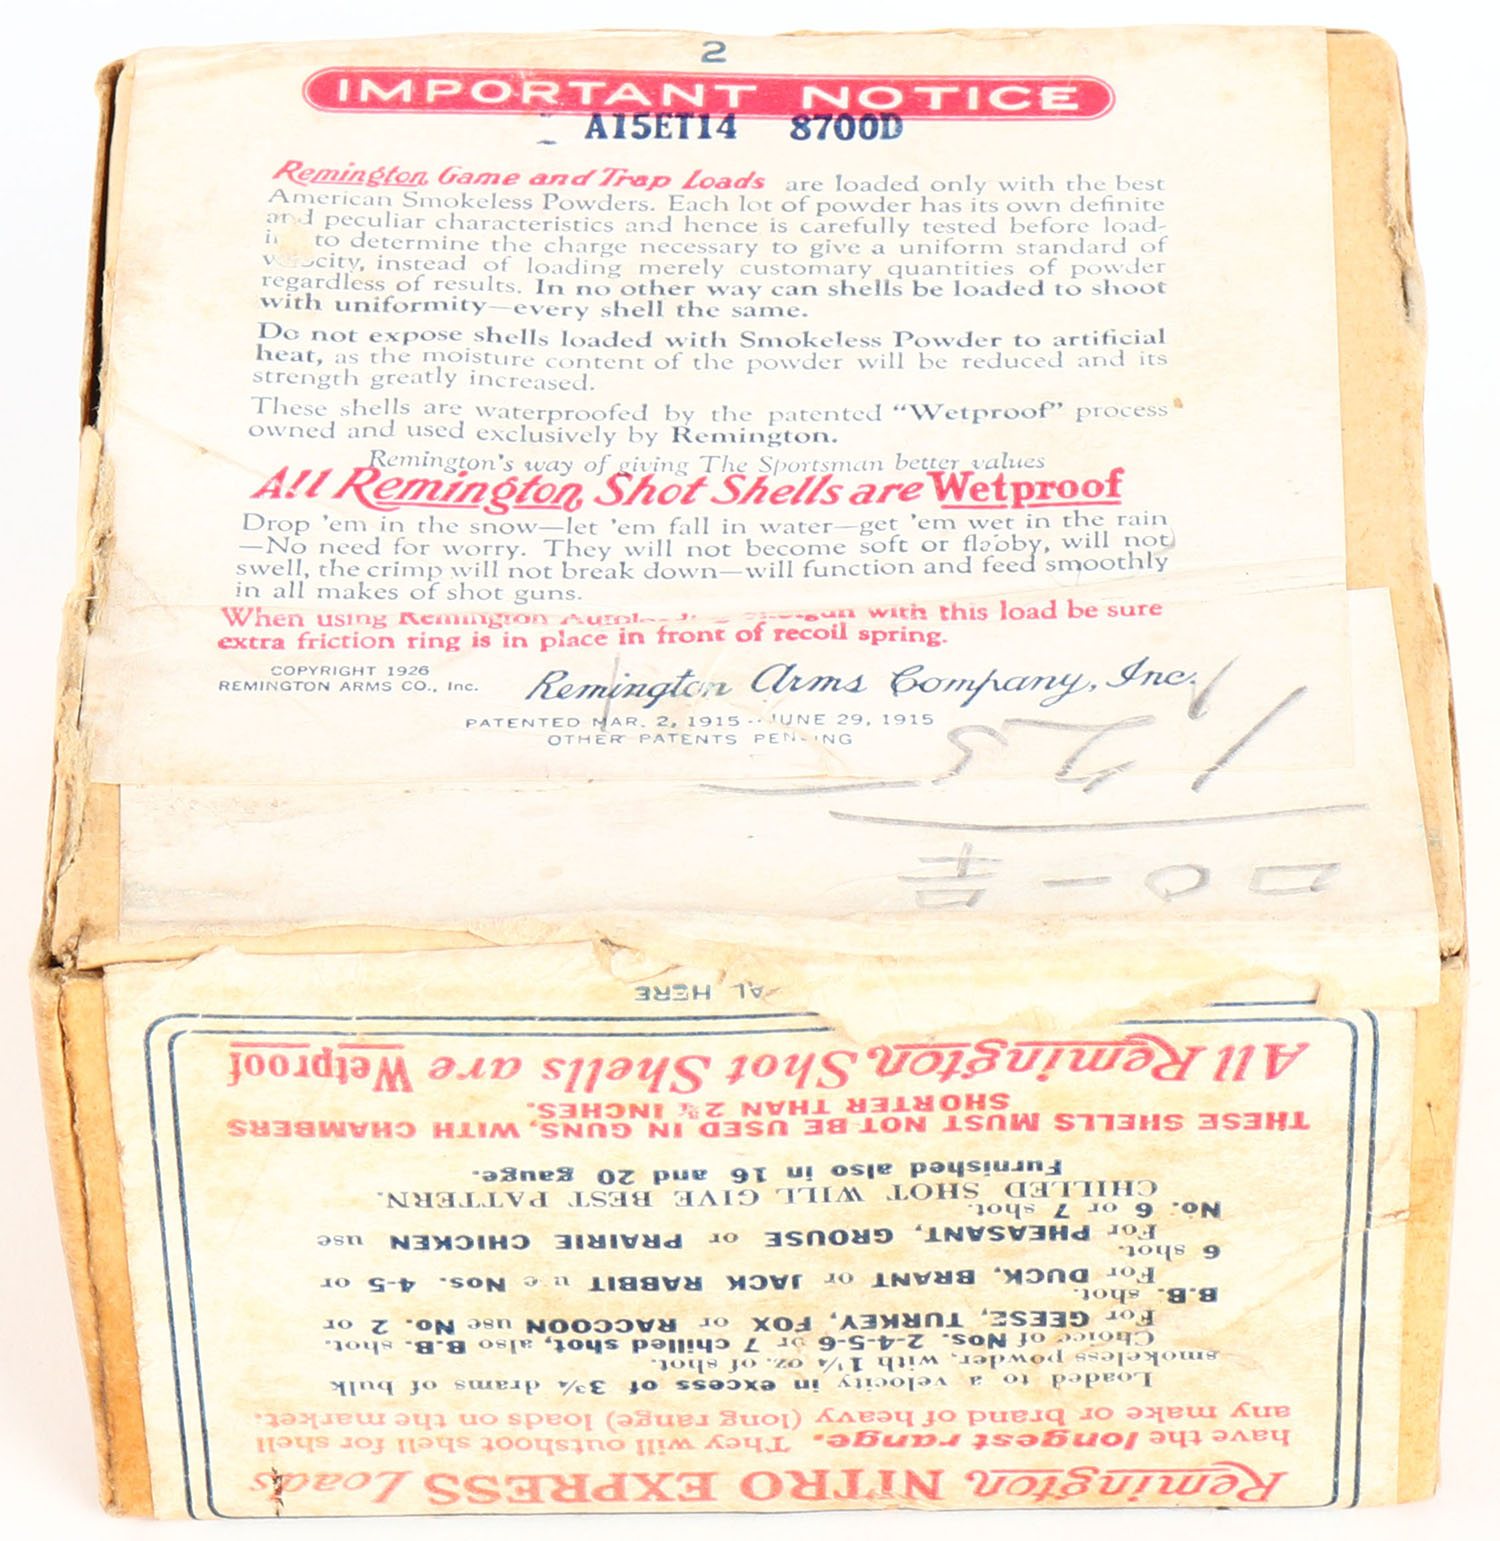 2
IMPORTANT NOTICE
A15ET14 8700D
Remington Game and Trap Loads are loaded only with the best
American Smokeless Powders. Each lot of powder has its own definite
and peculiar characteristics and hence is carefully tested before load-
to determine the charge necessary to give a uniform standard of
velocity, instead of loading merely customary quantities of powder
regardless of results. In no other way can shells be loaded to shoot
with uniformity—every shell the same.
Do not expose shells loaded with Smokeless Powder to artificial
heat, as the moisture content of the powder will be reduced and its
strength greatly increased.
These shells are waterproofed by the patented "Wetproof" process
owned and used exclusively by Remington.
Remington's way of giving The Sportsman better values
All Remington Shot Shells are Wetproof
Drop 'em in the snow—let 'em fall in water—get 'em wet in the rain
—No need for worry. They will not become soft or flabby, will not
swell, the crimp will not break down—will function and feed smoothly
in all makes of shot guns.
When using Remington Autoloading Shotgun with this load be sure
extra friction ring is in place in front of recoil spring.
COPYRIGHT 1926
REMINGTON ARMS CO., Inc.
Remington Arms Company, Inc.
PATENTED MAR. 2, 1915 -- JUNE 29, 1915
OTHER PATENTS PENDING
125
HERE
Remington NITRO EXPRESS Loads
have the longest range. They will outshoot shell for shell
any make or brand of heavy (long range) loads on the market.
Loaded to a velocity in excess of 3¾ drams of bulk
smokeless powder, with 1¼ oz. of shot.
Choice of Nos. 2-4-5-6 or 7 chilled shot, also B.B. shot.
For GEESE, TURKEY, FOX or RACCOON use No. 2 or
B.B. shot.
For DUCK, BRANT or JACK RABBIT use Nos. 4-5 or
6 shot.
For PHEASANT, GROUSE or PRAIRIE CHICKEN use
No. 6 or 7 shot.
CHILLED SHOT WILL GIVE BEST PATTERN.
Furnished also in 16 and 20 gauge.
THESE SHELLS MUST NOT BE USED IN GUNS, WITH CHAMBERS
SHORTER THAN 2¾ INCHES.
All Remington Shot Shells are Wetproof